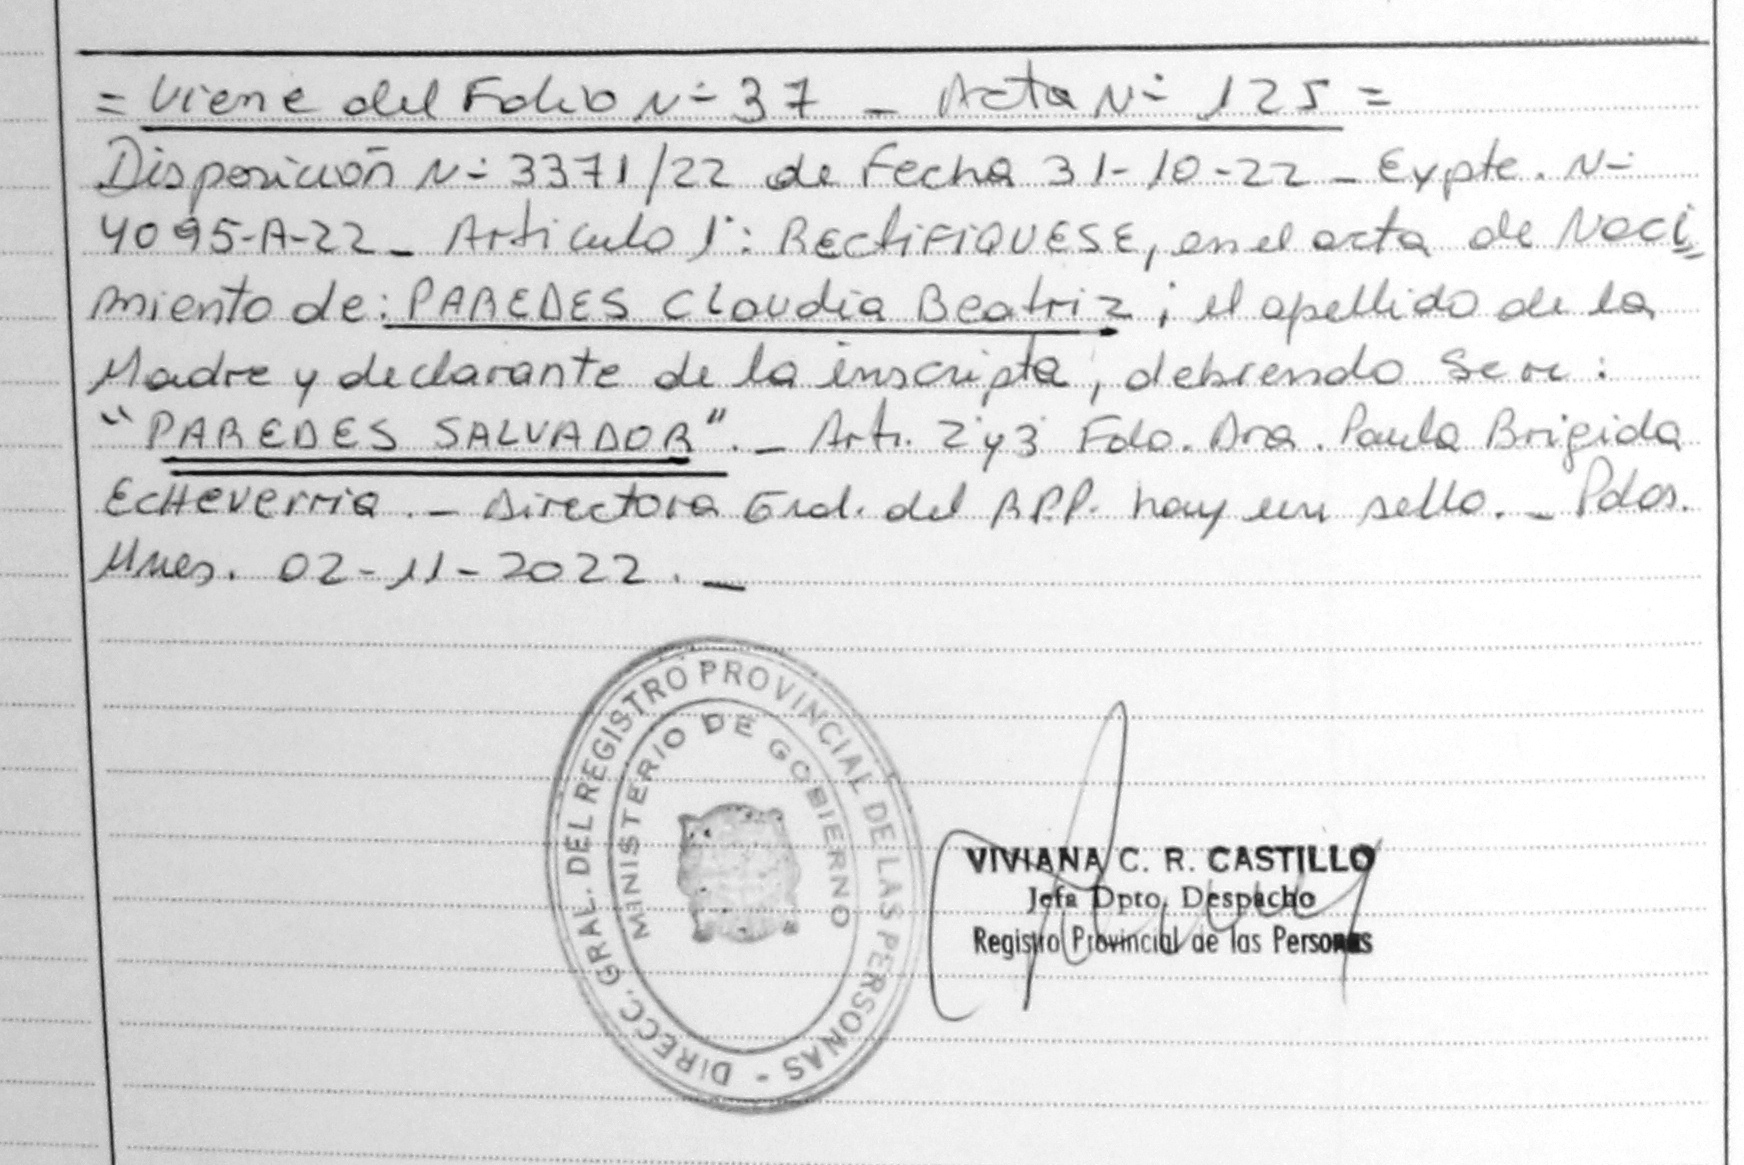 = Viene del Folio N- 37 - Acta N- 125 =
Disposición N- 3371/22 de Fecha 31-10-22 - Expte. N-
4095-A-22 - Articulo 1°: RECTIFIQUESE, en el acta de Naci
miento de: PAREDES Claudia Beatriz; el apellido de la
Madre y declarante de la inscripta, debiendo Ser:
"PAREDES SALVADOR". - Art. 2 y 3 Fdo. Dra. Paula Brigida
Echeverria. - Directora Gral. del R.P.P. hay un sello. - Pdas.
Mnes. 02-11-2022. -
DIRECC. GRAL. DEL REGISTRO PROVINCIAL DE LAS PERSONAS -
MINISTERIO DE GOBIERNO
VIVIANA C. R. CASTILLO
Jefa Dpto. Despacho
Registro Provincial de las Personas